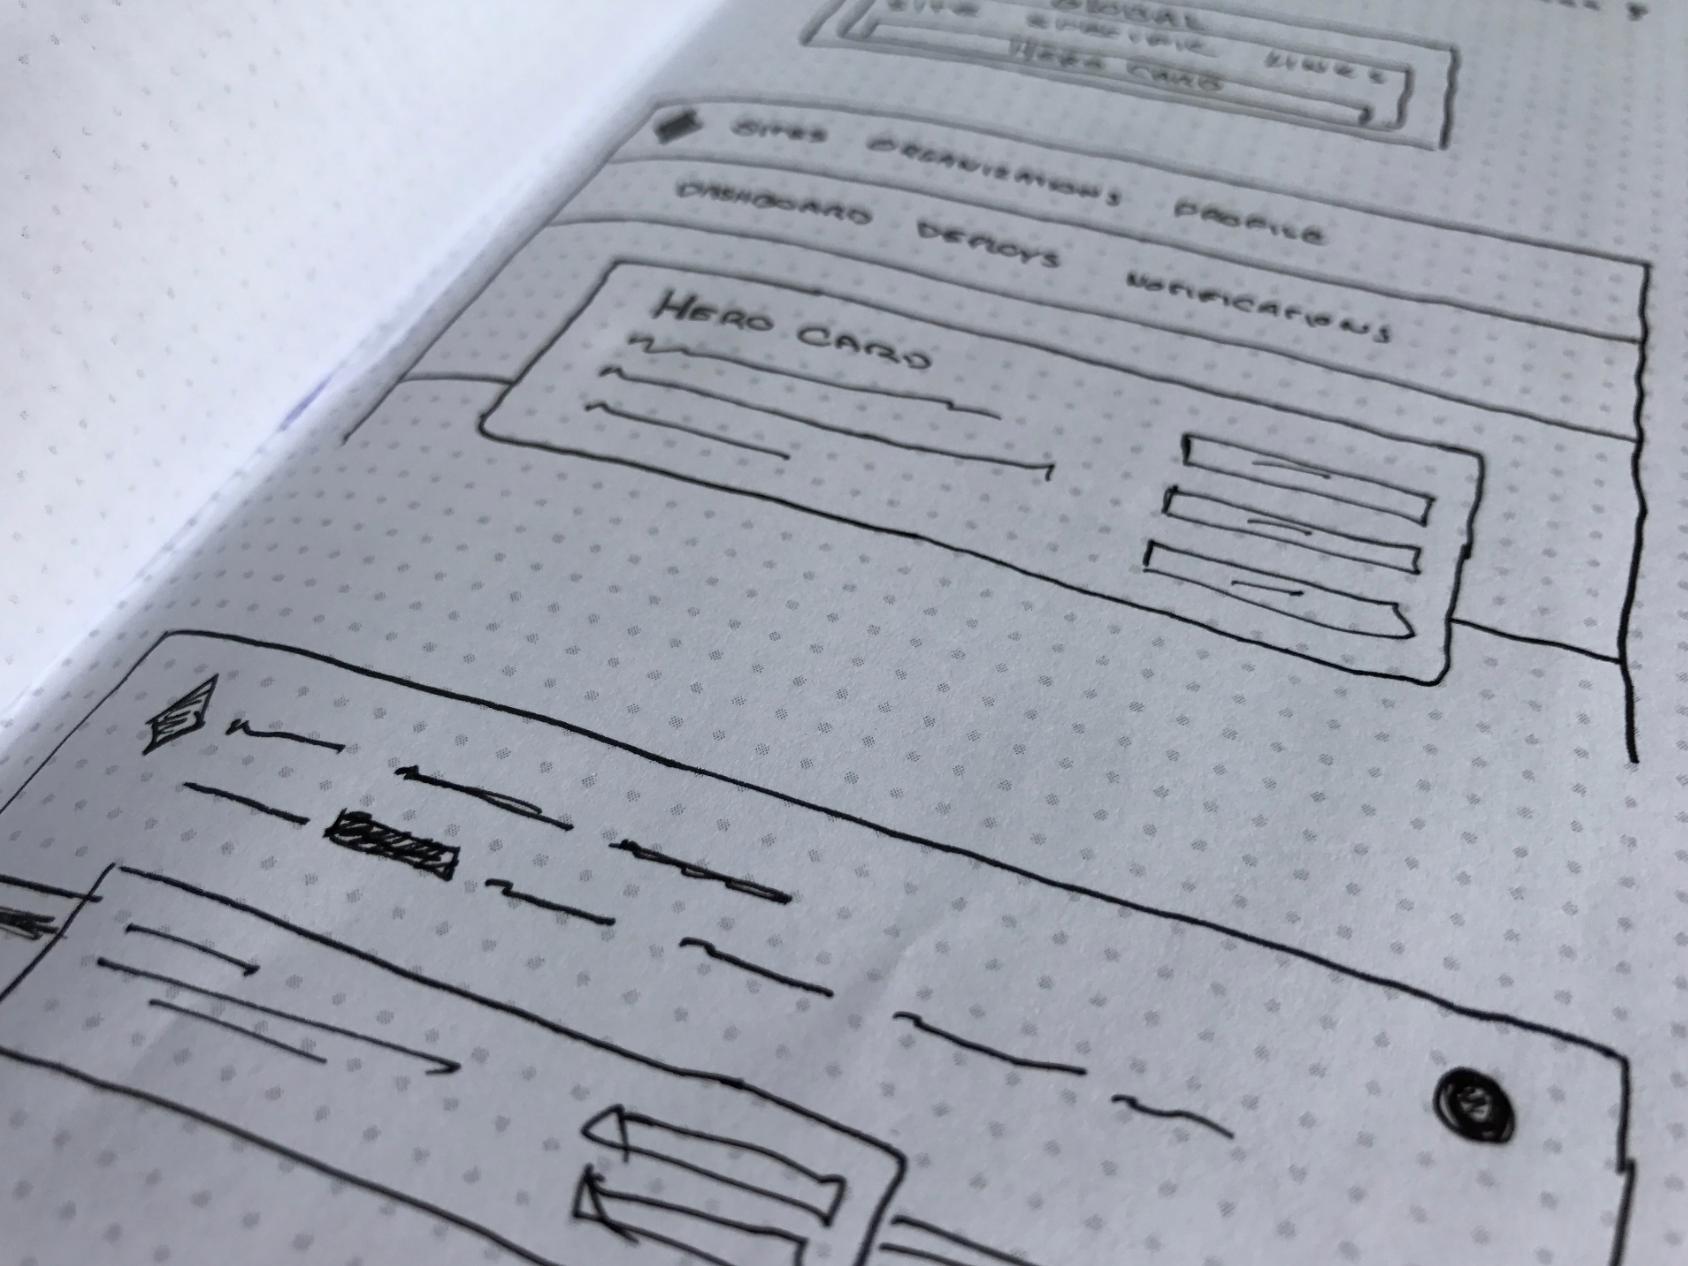 GLOBAL
SITE SPECIFIC LINKS
HERO CARD
SITES ORGANIZATIONS PROFILE
DASHBOARD DEPLOYS NOTIFICATIONS
HERO CARD